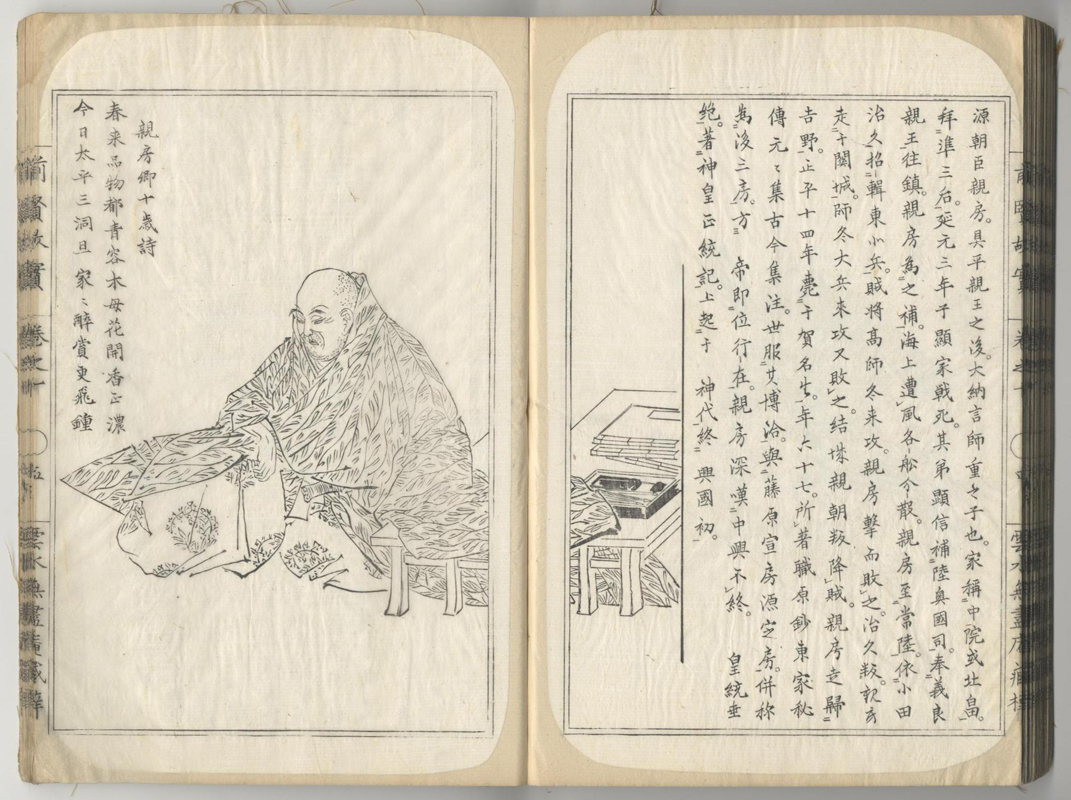 源朝臣親房。具平親王之後。大納言師重之子也。家稱中院或北畠。
拜準三后。延元三年子顯家戰死。其弟顯信補陸奧國司。奉義良
親王往鎮。親房為之補。海上遭風各舩今散。親房至常陸。依小田
治久招輯東小兵。賊將高師冬来攻。親房擊而敗之。治久叛
走于関城。師冬大兵来攻又敗之。结城親朝叛降賊。親房走歸
吉野。正平十四年薨于賀名生。年六十七。所著職原鈔東家秘
傳元〻集古今集注。世服其博洽。與藤原宣房源定房。併称
為後三房。方 帝即位行在。親房深嘆中興不終。 皇統垂
絶。著神皇正統記。上起于 神代終 興國初。
親房卿十歳詩
春来品物都青容木母花開香正濃
今日太平三洞旦 家〻醉賞更飛鐘
前賢故實